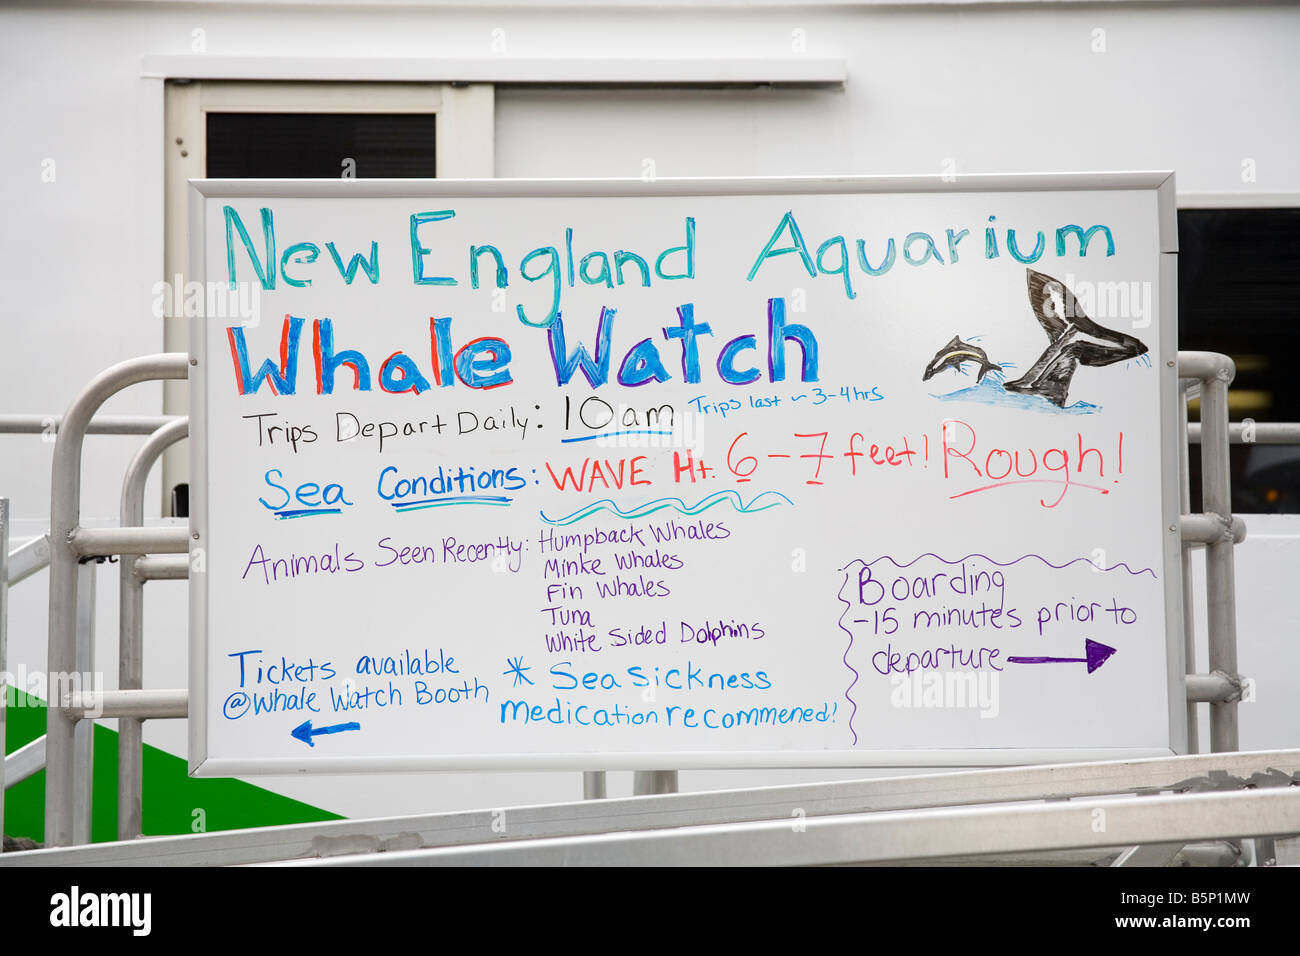 New England Aquarium
Whale Watch
Trips Depart Daily: 10am Trips last ~ 3-4hrs
Sea Conditions: WAVE Ht. 6-7 feet! Rough!
Animals Seen Recently: Humpback Whales
Minke Whales
Fin Whales
Tuna
White Sided Dolphins
Boarding
-15 minutes prior to
departure
Tickets available
@ Whale Watch Booth
* Sea Sickness
medication recommened!
alamy
Image ID: B5P1MW
www.alamy.com